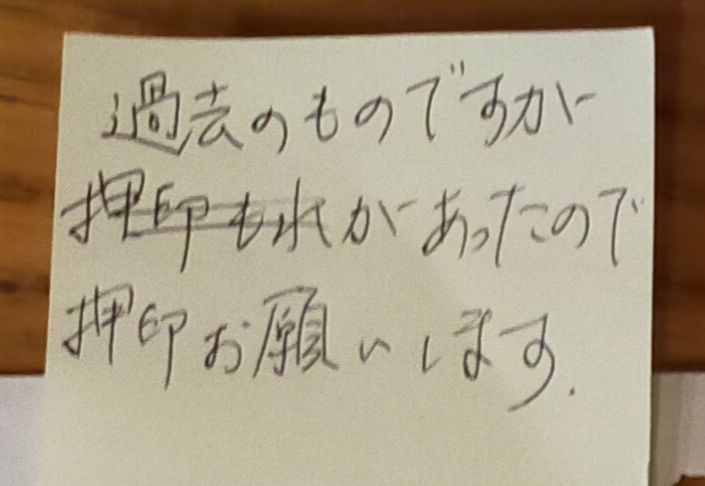 過去のものですが
押印もれがあったので
押印お願いします.